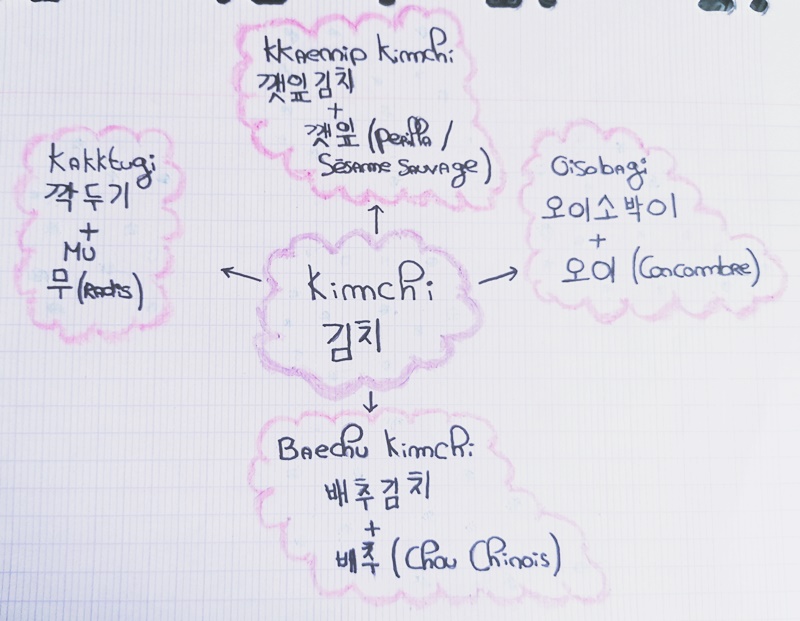 Kkaennip Kimchi
깻잎김치
+
깻잎 (Perilla /
Sésame Sauvage)
Kakktugi
깍두기
+
Mu
무 (Radis)
Kimchi
김치
Oisobagi
오이소박이
+
오이 (Concombre)
Baechu Kimchi
배추김치
+
배추 (Chou Chinois)